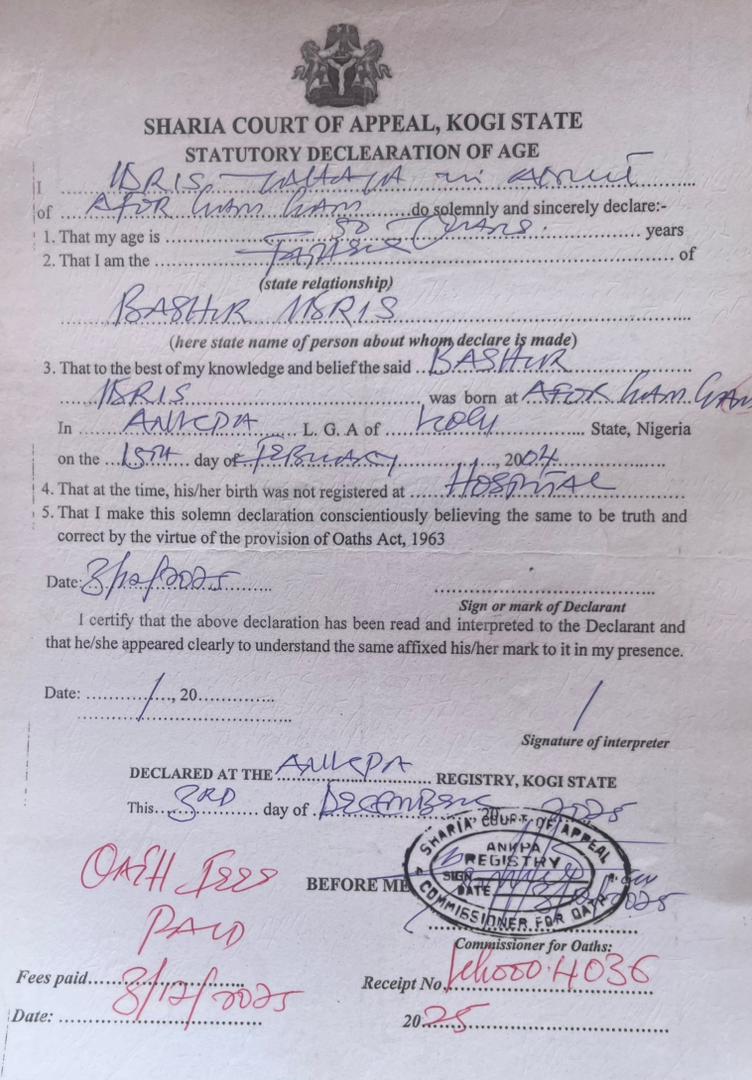 SHARIA COURT OF APPEAL, KOGI STATE
STATUTORY DECLEARATION OF AGE
I IDRIS
of AFOR GAM GAM do solemnly and sincerely declare:-
1. That my age is 50 Years years
2. That I am the FATHER of
(state relationship)
BASHIR IDRIS
(here state name of person about whom declare is made)
3. That to the best of my knowledge and belief the said BASHIR
IDRIS was born at AFOR GAM GAM
In ANKPA L. G. A of KOGI State, Nigeria
on the 15TH day of FEBRUARY, 2004
4. That at the time, his/her birth was not registered at HOSPITAL
5. That I make this solemn declaration conscientiously believing the same to be truth and
correct by the virtue of the provision of Oaths Act, 1963
Date: 3/12/2025
Sign or mark of Declarant
I certify that the above declaration has been read and interpreted to the Declarant and
that he/she appeared clearly to understand the same affixed his/her mark to it in my presence.
Date: / , 20
/
Signature of interpreter
DECLARED AT THE ANKPA REGISTRY, KOGI STATE
This 3RD day of DECEMBER 20 2025
SHARIA COURT OF APPEAL
ANKPA
REGISTRY
SIGN
DATE 3/12/2025
COMMISSIONER FOR OATH
OATH FEES
PAID
BEFORE ME
Commissioner for Oaths:
Fees paid
3/12/2025
Receipt No. 4036
Date:
2025